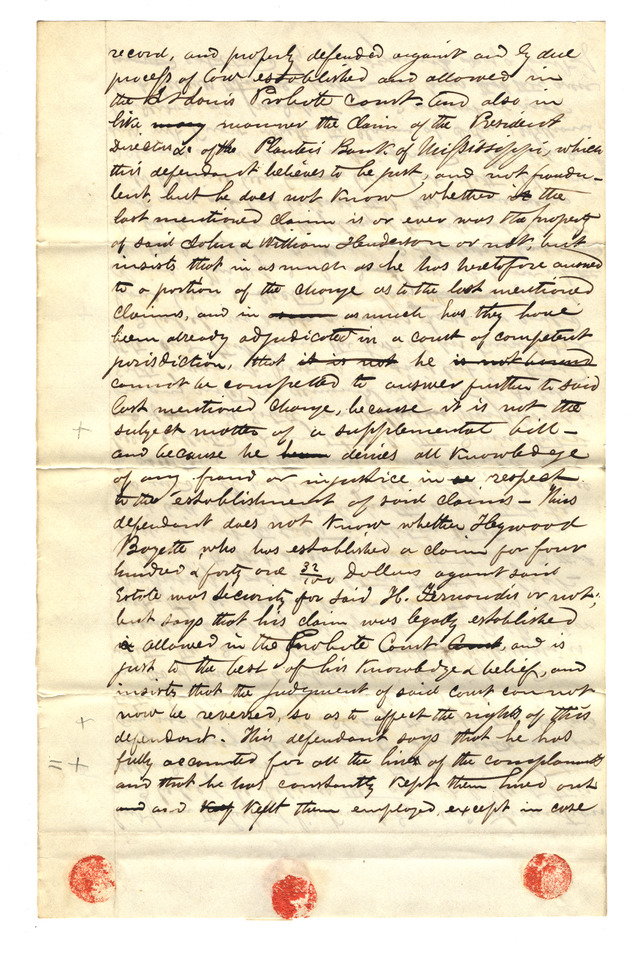 record, and properly defended against and by due
process of law established and allowed in
the St Louis Probate court - And also in
like many manner the claim of the President
Directors &c of the Planters Bank of Mississippi, which
this defendant believes to be just, and not fraudu-
lent, but he does not know whether is the
last mentioned claim is or ever was the property
of said John & William Henderson or not, but
insists that in as much as he has heretofore answered
to a portion of the charge as to the last mentioned
claims, and in as much has they have
been already adjudicated in a court of competent
jurisdiction, that it is not he is not bound
cannot be compelled to answer further to said
last mentioned charge, because it is not the
subject matter of a supplemental bill -
and because he denies all knowledge
of any fraud or injustice in respect
to the establishment of said claims - This
defendant does not know whether Heywood
Bozette who has established a claim for four
hundred & forty one 32/100 Dollars against said
Estate was security for said H. Fernandis or not;
but says that his claim was legally established
& allowed in the Probate Court, and is
just to the best of his knowledge & belief, and
insists that the judgment of said court cannot
now be reversed, so as to affect the rights of this
defendant. This defendant says that he has
fully accounted for all the hires of the complainants
and that he has constantly kept them hired out
and and kept them employed, except in case